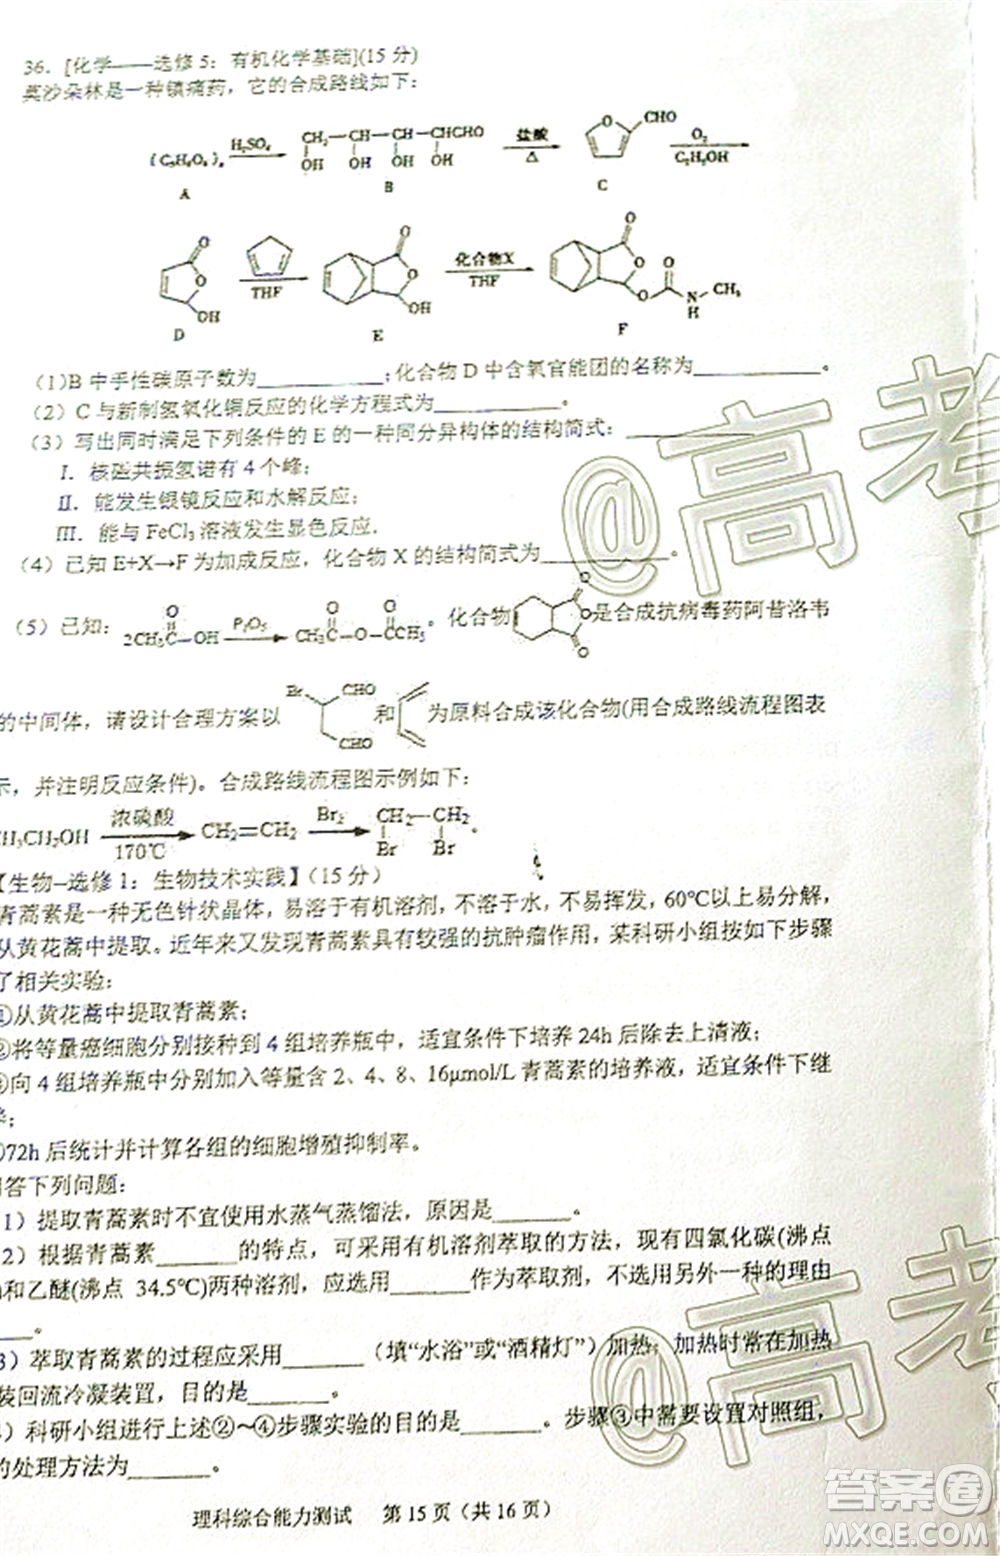 36．[化学——选修 5：有机化学基础](15 分)
莫沙朵林是一种镇痛药，它的合成路线如下：
(C5H8O4)n H2SO4 CH2—CH—CH—CHCHO 盐酸 △ O CHO O2 C2H5OH
OH OH OH OH
A B C
O O OH THF O O OH 化合物X THF O O O O N H CH3
D E F
(1)B 中手性碳原子数为；化合物 D 中含氧官能团的名称为。
(2）C 与新制氢氧化铜反应的化学方程式为。
(3）写出同时满足下列条件的 E 的一种同分异构体的结构简式：
I．核磁共振氢谱有 4 个峰；
II．能发生银镜反应和水解反应；
III．能与 FeCl3 溶液发生显色反应．
(4）已知 E+X→F 为加成反应，化合物 X 的结构简式为。
(5）已知：2CH3C OH P2O5 CH3C O CCH3。化合物是合成抗病毒药阿昔洛韦
的中间体，请设计合理方案以 Br CHO CHO 和为原料合成该化合物(用合成路线流程图表
示，并注明反应条件)。合成路线流程图示例如下：
CH3CH2OH 浓硫酸 170℃ CH2=CH2 Br2 CH2—CH2 。
Br Br
【生物–选修 1：生物技术实践】(15 分)
青蒿素是一种无色针状晶体，易溶于有机溶剂，不溶于水，不易挥发，60℃以上易分解，
从黄花蒿中提取。近年来又发现青蒿素具有较强的抗肿瘤作用，某科研小组按如下步骤
了相关实验：
①从黄花蒿中提取青蒿素；
②将等量癌细胞分别接种到 4 组培养瓶中，适宜条件下培养 24h 后除去上清液；
③向 4 组培养瓶中分别加入等量含 2、4、8、16μmol/L 青蒿素的培养液，适宜条件下继
④72h 后统计并计算各组的细胞增殖抑制率。
回答下列问题：
1）提取青蒿素时不宜使用水蒸气蒸馏法，原因是。
2）根据青蒿素的特点，可采用有机溶剂萃取的方法，现有四氯化碳(沸点
和乙醚(沸点 34.5℃)两种溶剂，应选用作为萃取剂，不选用另外一种的理由
。
3）萃取青蒿素的过程应采用（填“水浴”或“酒精灯”）加热；加热时常在加热
装回流冷凝装置，目的是。
）科研小组进行上述②～④步骤实验的目的是。步骤③中需要设置对照组，
的处理方法为。
理科综合能力测试 第 15 页（共 16 页）
@高考
@高考
答案圈
MXQE.COM